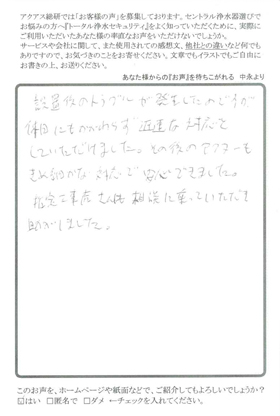 アクアス総研では「お客様の声」を募集しております。セントラル浄水器選びで
お悩みの方へ『トータル浄水セキュリティ』をよく知っていただくために、実際に
ご利用いただいたあなた様の率直なお声をいただけないでしょうか。
サービスや会社に関して、また使用されての感想文、他社との違いなど何でも
ありですので、お気づきのことをお寄せください。文章でもイラストでもご自由に
お書きの上、お送りください。
あなた様からの『お声』を待ちこがれる 中永より
設置後のトラブルが発生したのですが
休日にもかかわらず迅速な対応を
していただけました。その後のアフターも
きめ細かな対応で安心できました。
指定工事店さんも相談に乗っていただき
助かりました。
このお声を、ホームページや紙面などで、ご紹介してもよろしいでしょうか?
☑はい □匿名で □ダメ ←チェックを入れてください。